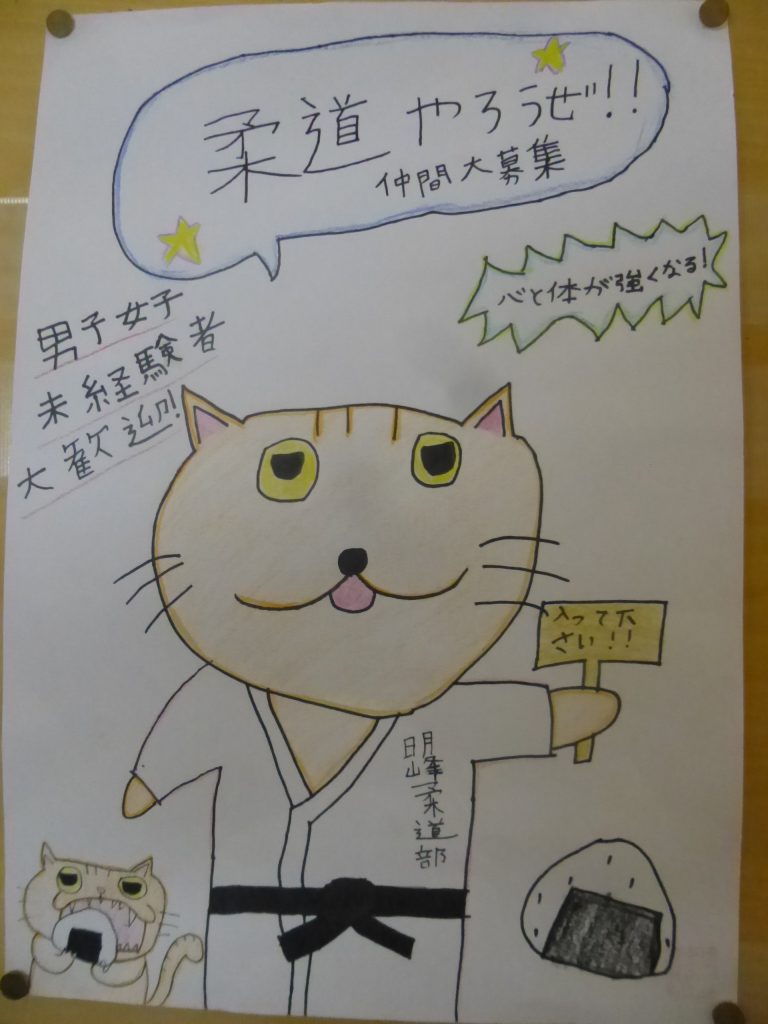 柔道やろうぜ!!
仲間大募集
心と体が強くなる!
男子女子
未経験者
大歓迎!!
入って下
さい!!
明峰柔道部